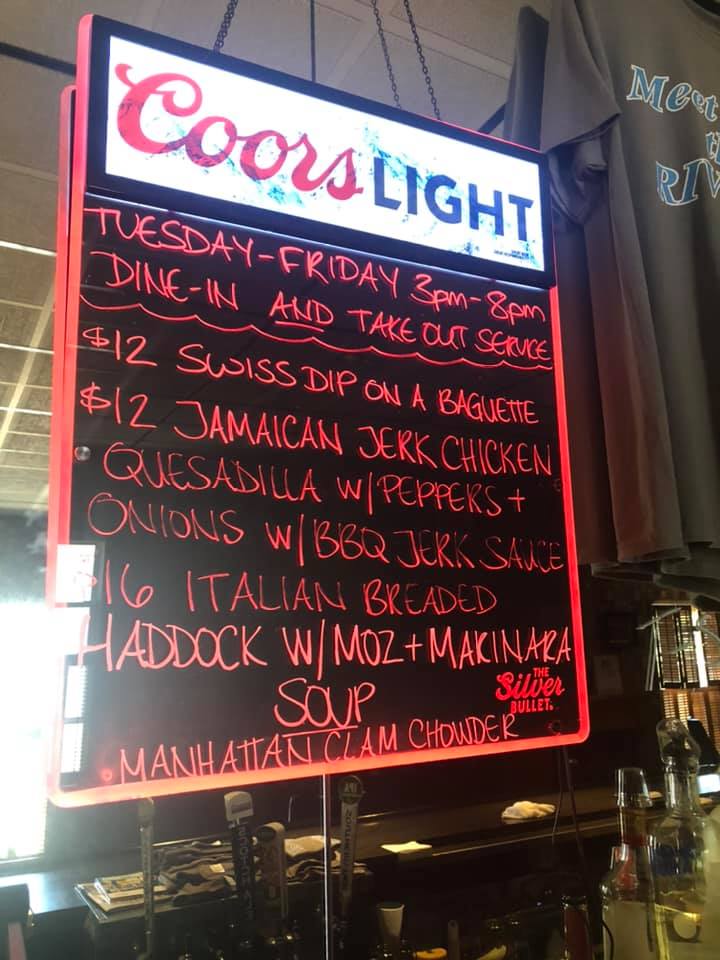 Coors LIGHT
TUESDAY-FRIDAY 3pm-8pm
DINE-IN AND TAKE OUT SERVICE
$12 SWISS DIP ON A BAGUETTE
$12 JAMAICAN JERK CHICKEN
QUESADILLA W/PEPPERS +
ONIONS W/BBQ JERK SAUCE
$16 ITALIAN BREADED
HADDOCK W/MOZ+MARINARA
SOUP
MANHATTAN CLAM CHOWDER
THE
Silver
BULLET.
Meet